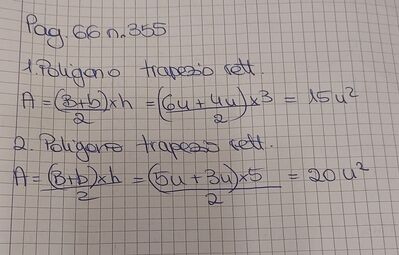 Pag. 66 n. 355
1. Poligono trapezio rett.
A = (B+b)×h/2 = (6u+4u)×3/2 = 15u²
2. Poligono trapezio rett.
A = (B+b)×h/2 = (5u+3u)×5/2 = 20u²